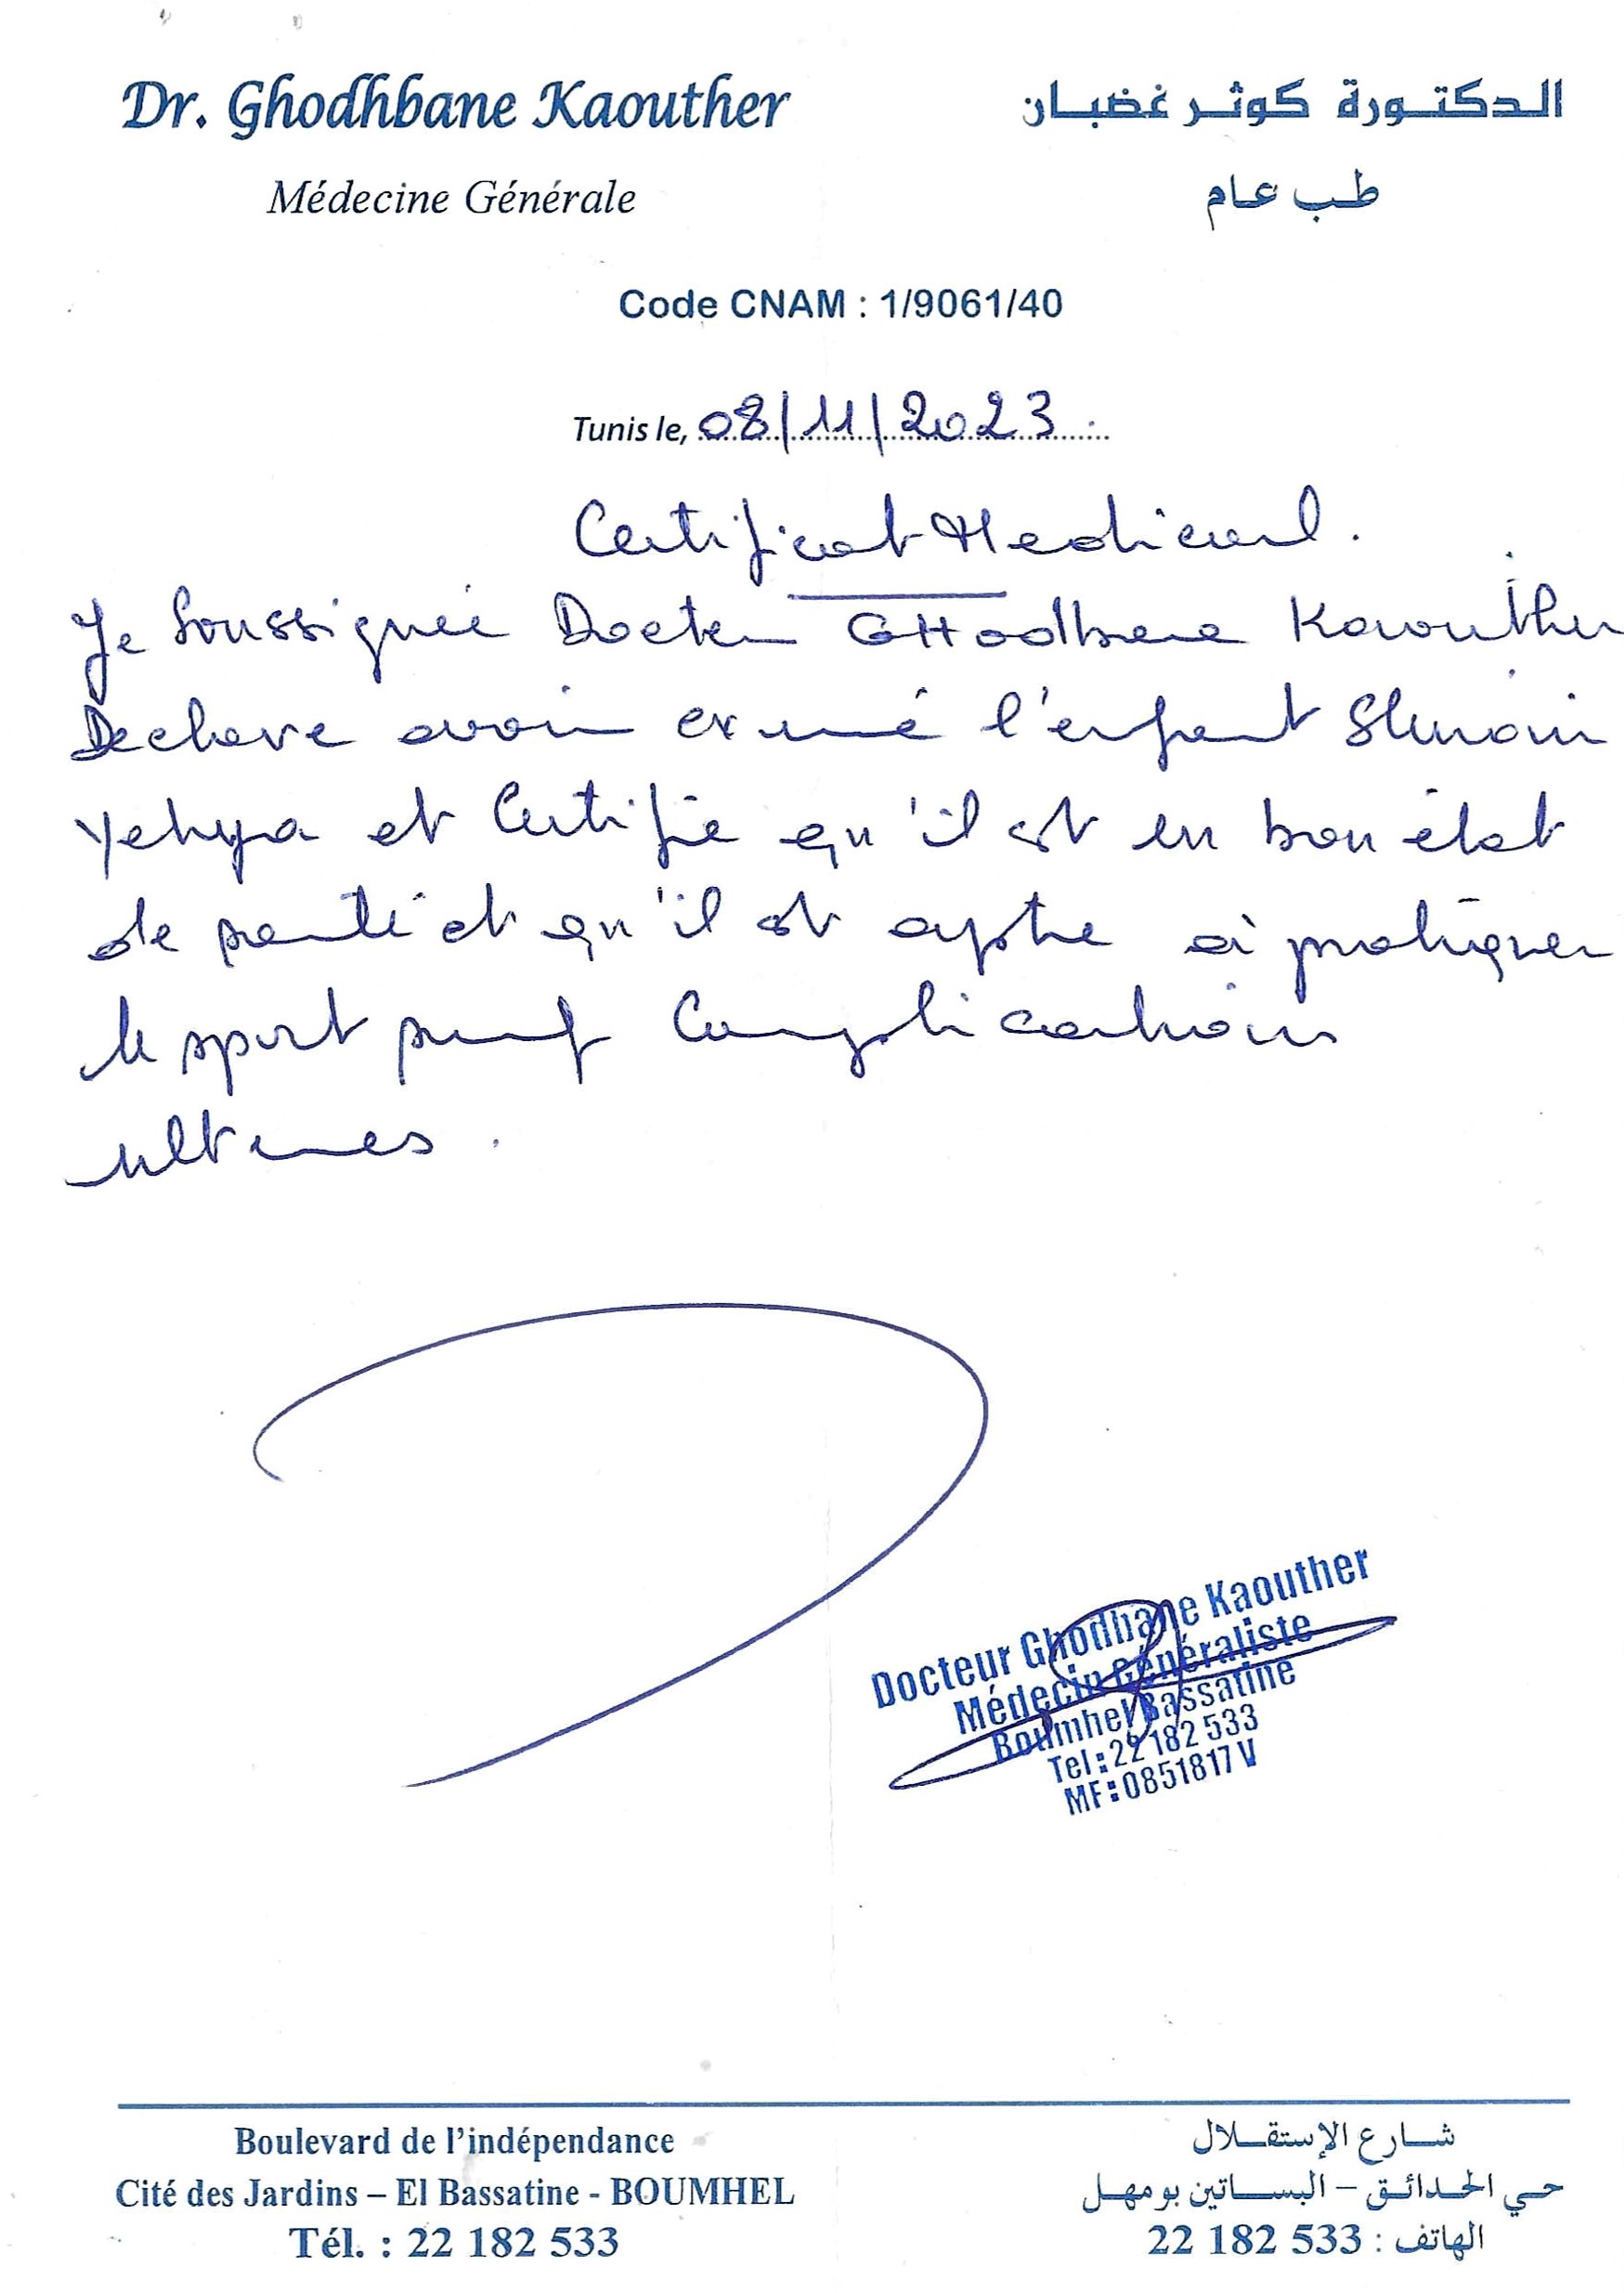 Dr. Ghodhbane Kaouther
الدكتورة كوثر غضبان
Médecine Générale
طب عام
Code CNAM : 1/9061/40
Tunis le, 08/11/2023
Certificat Medical.
Je Soussignée Docteur GHodbane Kaouther
Declare avoir examiné l'enfant
Yehya et Certifie qu'il est en bon état
de santé et qu'il est apte à pratiquer
le sport sauf Complications
Docteur Ghodbane Kaouther
Médecin Généraliste
Boumhel Bassatine
Tel:22 182 533
MF:0851817 V
Boulevard de l'indépendance
Cité des Jardins – El Bassatine - BOUMHEL
Tél. : 22 182 533
شارع الإستقلال
حي الحدائق – البساتين بومهل
الهاتف : 533 182 22